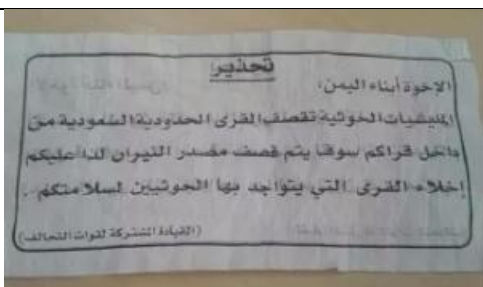 تحذير
الإخوة أبناء اليمن،
المليشيات الحوثية تقصف القرى الحدودية السعودية من
داخل قراكم سوف يتم قصف مصدر النيران لذا عليكم
إخلاء القرى التي يتواجد بها الحوثيين لسلامتكم .
(القيادة المشتركة لقوات التحالف)